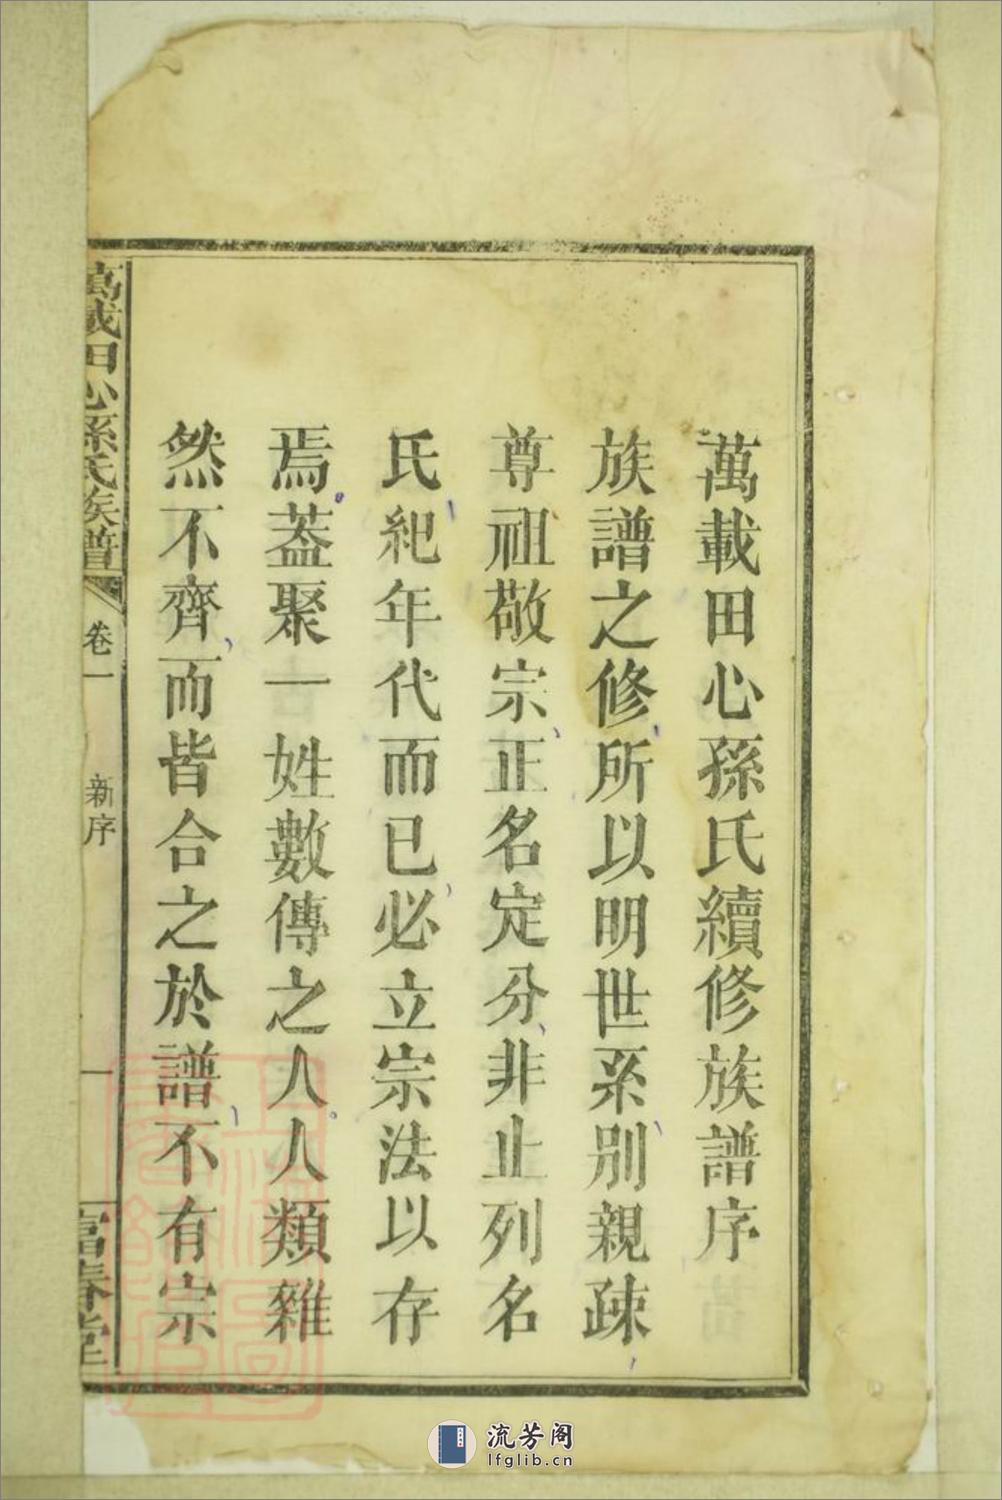 萬載田心孫氏續修族譜序
族譜之修所以明世系別親疎
尊祖敬宗正名定分非止列名
氏紀年代而已必立宗法以存
焉葢聚一姓數傳之人人類雜
然不齊而皆合之於譜不有宗
萬載田心孫氏族譜
卷一
新序
一
富春堂
流芳阁
lfglib.cn